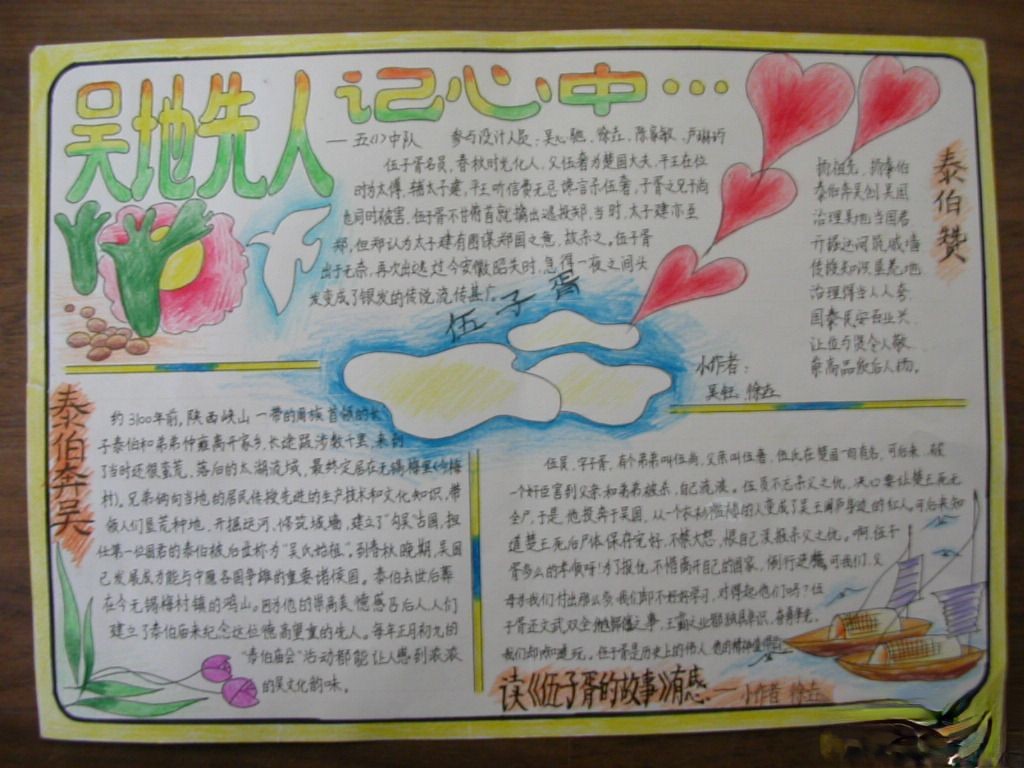 吴地先人记心中…
五(1)中队 参与设计人员:吴心驰、徐垚、陈家敏、卢琳巧
伍子胥名员,春秋时先化人,父伍奢为楚国大夫,平王在位
时为太傅,辅太子建,平王听信费无忌谗言杀伍奢,子胥之兄子尚
也同时被害,伍子胥不甘俯首就擒出逃投郑,当时,太子建亦至
郑,但郑认为太子建有图谋郑国之意,故杀之。伍子胥
出于无奈,再次出逃,过今安徽昭关时,急得一夜之间头
发变成了银发的传说流传甚广
伍子胥
泰伯赞
泰伯奔吴创吴国
治理吴地当国君
开掘运河筑城墙
传授知识垦荒地
治理得当人人夸
国泰民安百业兴
让位予贤令人敬
崇高品质后人扬。
小作者:
吴钰、徐垚
泰伯奔吴
约3100年前,陕西岐山一带的周族首领的长
子泰伯和弟弟仲雍离开家乡,长途跋涉数千里,来到
了当时还很蛮荒、落后的太湖流域,最终定居在无锡梅里(今梅
村)。兄弟俩向当地的居民传授先进的生产技术和文化知识,带
领人们垦荒种地,开掘运河,修筑城墙,建立了“句吴”古国,担
任第一位国君的泰伯被后世称为“吴氏始祖”。到春秋晚期,吴国
已发展成为能与中原各国争雄的重要诸侯国。泰伯去世后葬
在今无锡梅村镇的鸿山。因为他的崇高美德惠及后人,人们
建立了泰伯庙来纪念这位德高望重的先人。每年正月初九的
“泰伯庙会”活动都能让人感到浓浓
的吴文化韵味。
伍员,字子胥,有个弟弟叫伍尚,父亲叫伍奢,伍氏在楚国一向有名,可后来,被
一个奸臣害到父亲和弟弟被杀,自己流浪。伍员不忘杀父之仇,决心要让楚王死无
全尸,于是,他投奔于吴国,从一个衣衫褴褛的人变成了吴王阖庐身边的红人。可后来知
道楚王死后尸体保存完好,不禁大怒,恨自己没报杀父之仇。啊,伍子
胥多么的孝顺呀!为了报仇,不惜离开自己的国家,倒行逆施。可我们,父
母为我们付出那么多,我们却不好好学习,对得起他们吗?伍
子胥还文武双全
我们却只知道玩。伍子胥是历史上的伟人,他的精神值得
读《伍子胥的故事》有感——小作者 徐垚